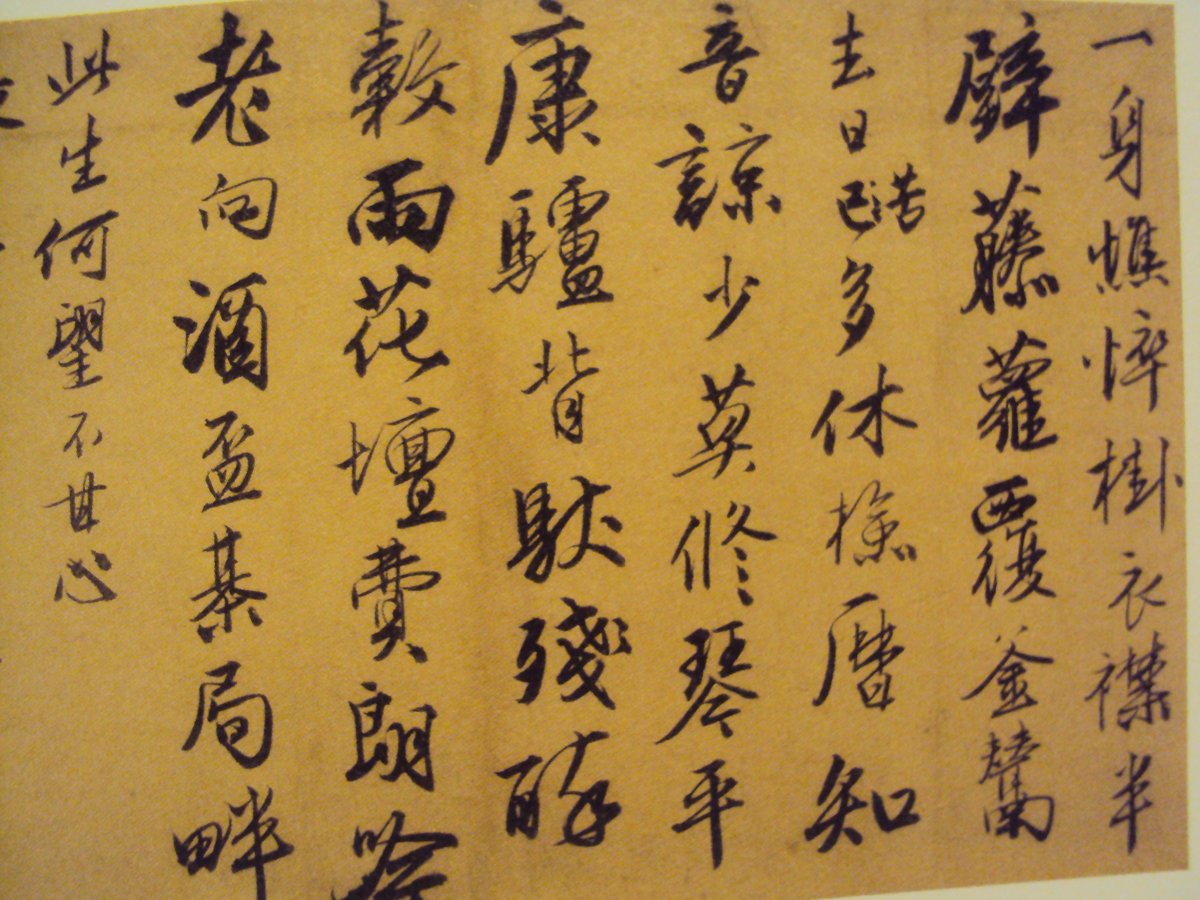 一身憔悴掛衣襟半
壁藤蘿覆釜鬵
去日已苦多休檢曆知
音諒少莫修琴平
康驢背馱殘醉
穀雨花壇費朗吟
老向酒盃棊局畔
此生何望不甘心